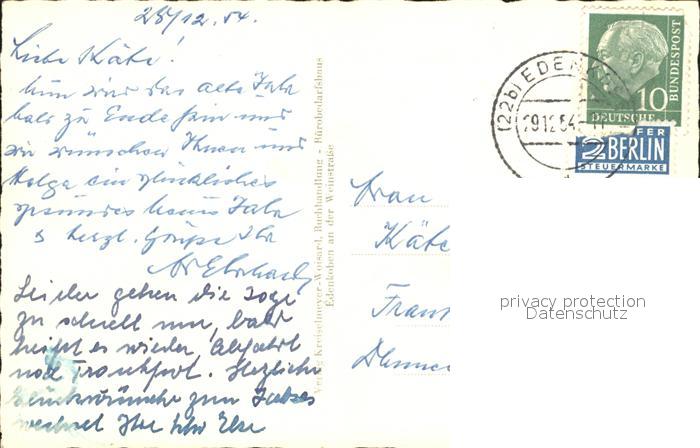 28/12.54.
Liebe Käte!
Nun wird das alte Jahr
bald zu Ende sein und
wir wünschen Ihnen und
Helga ein glückliches
gesundes neues Jahr
& herzl. Grüße Ihr
Leider gehen die Tage
zu schnell um, bald
heißt es wieder Abfahrt
nach Frankfurt. Herzliche
Glückwünsche zum Jahres
wechsel Ihre Else
Verlag Kretselmeyer-Woisard, Buchhandlung - Bürobedarfshaus
Edenkoben an der Weinstraße
(22b) EDENK
29.12.54
10
DEUTSCHE
BUNDESPOST
FER
2 BERLIN
STEUERMARKE
Frau
Käte
privacy protection
Datenschutz